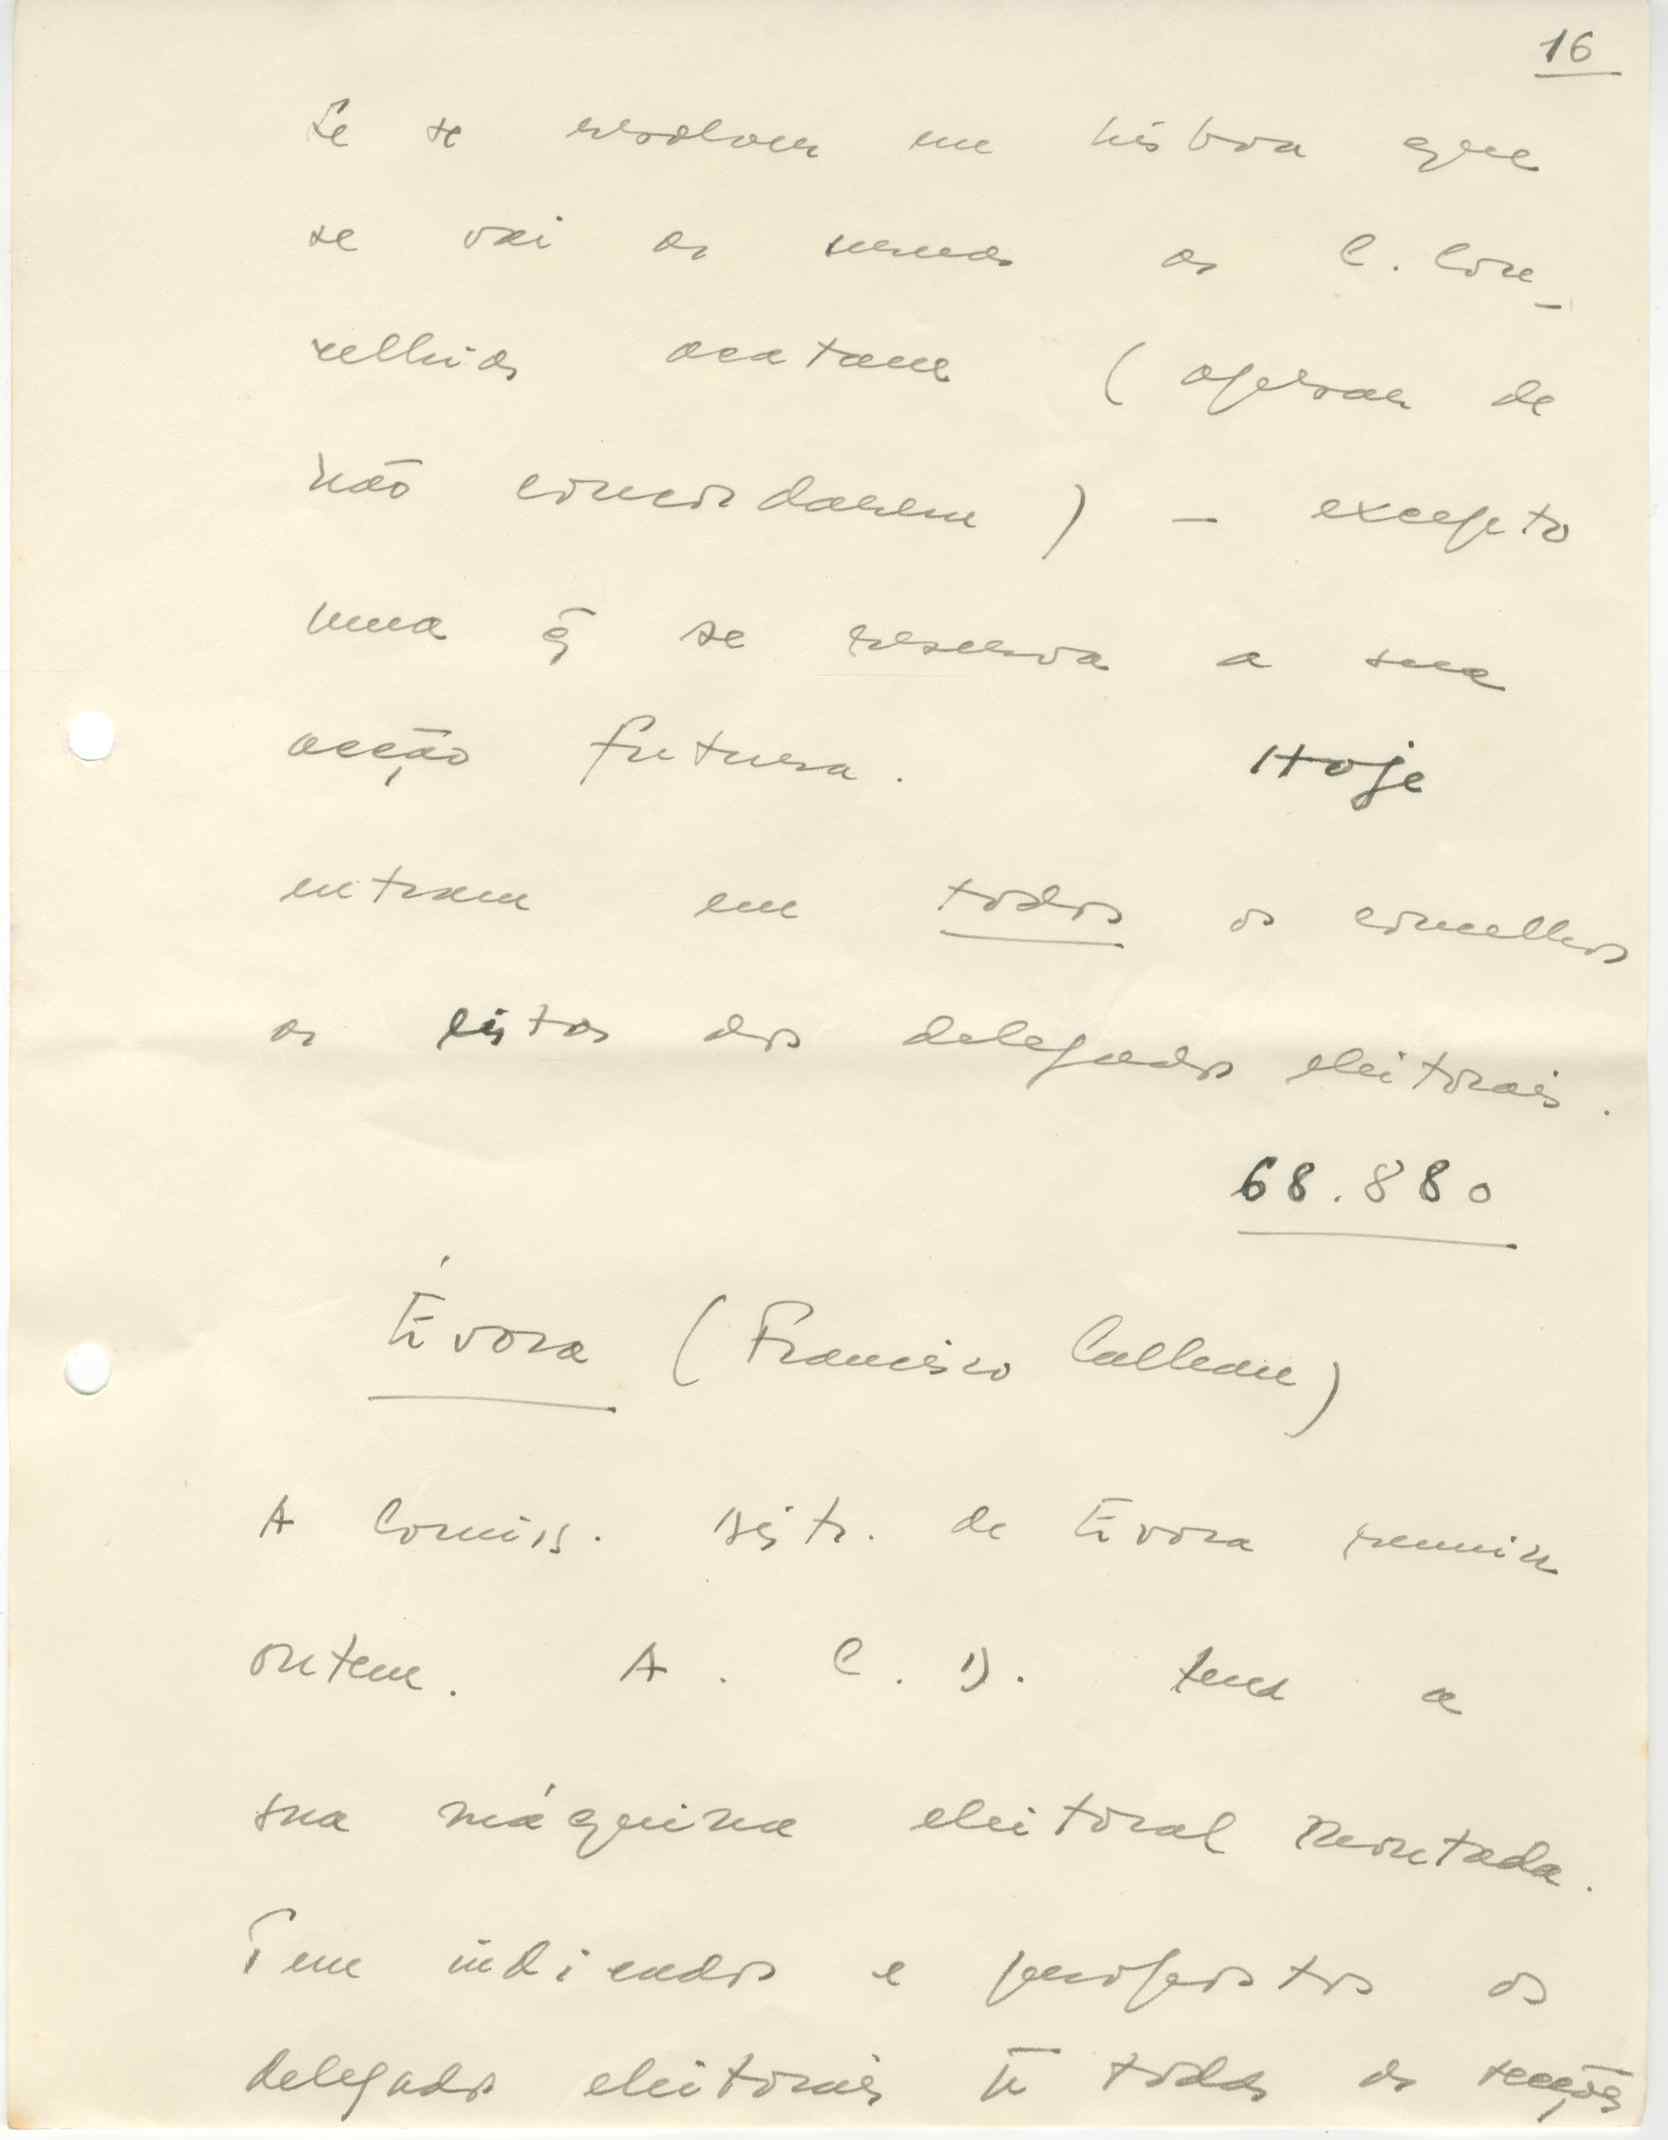 16
Se se resolver em Lisboa que
se vai às urnas as C. Con-
celhias acatam (apesar de
não concordarem) - excepto
uma q̃ se reserva a sua
acção futura. Hoje
entram em todos os concelhos
as listas dos delegados eleitorais.
68.880
Évora (Francisco Calhau)
A Comiss. Distr. de Évora reuniu
ontem. A C.D. tem a
sua máquina eleitoral montada.
Tem indicados e propostos os
delegados eleitorais todas as secções